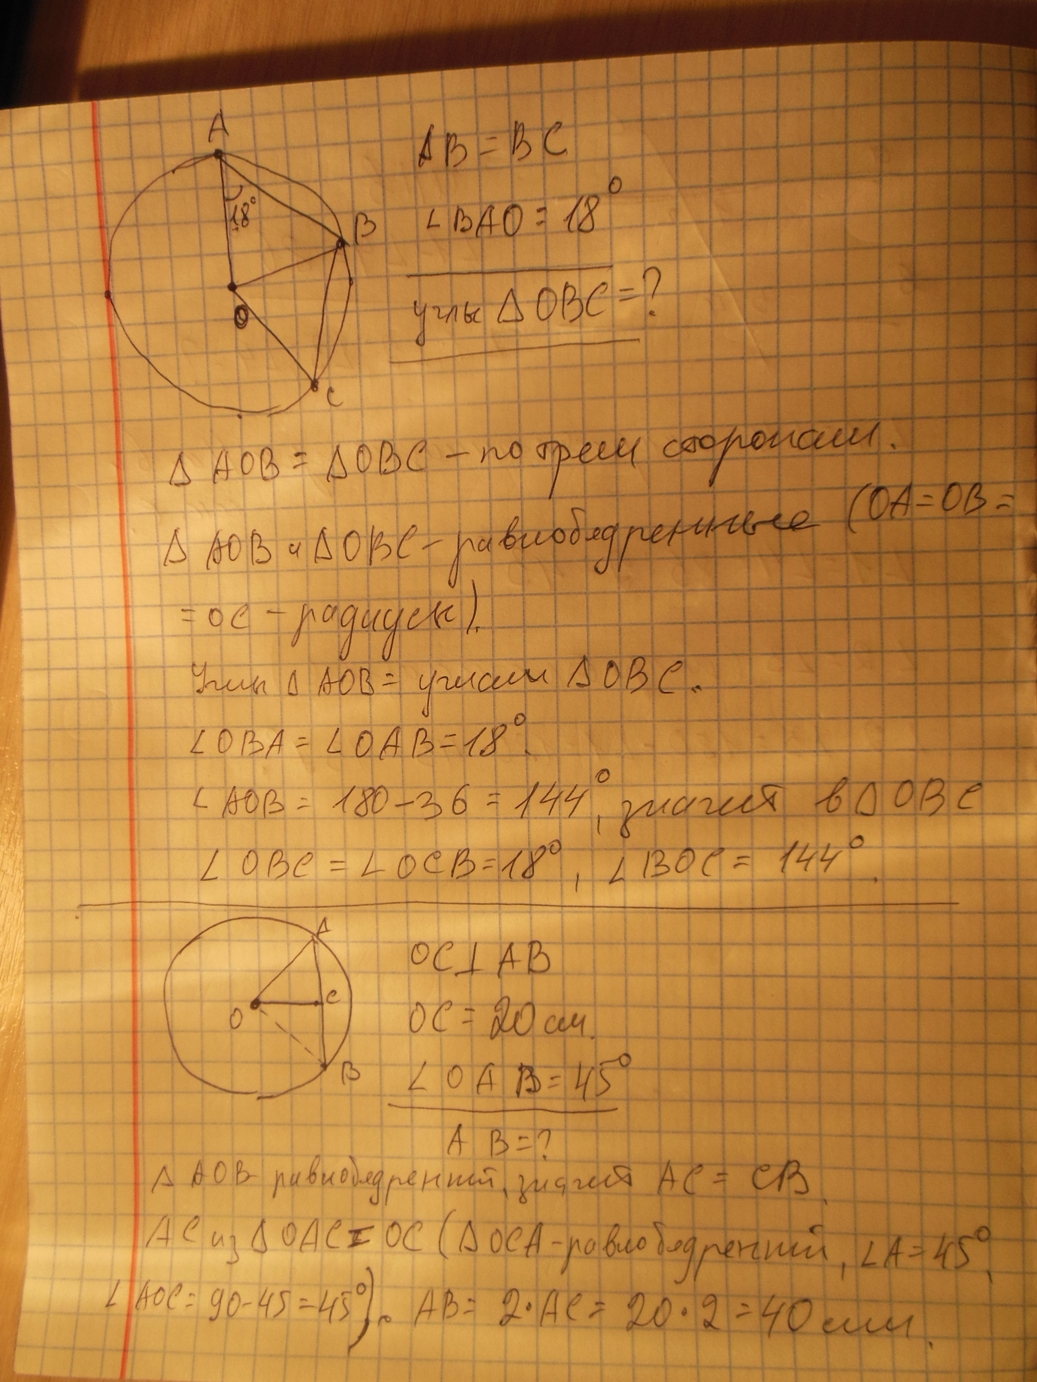 A
18°
B
O
C
AB = BC
∠BAO = 18°
углы △OBC = ?
△ AOB = △OBC – по трем сторонам.
△ AOB и △OBC – равнобедренные (OA = OB =
= OC – радиусы).
Углы △ AOB = углам △OBC.
∠OBA = ∠OAB = 18°.
∠AOB = 180 – 36 = 144°, значит в △ OBC
∠OBC = ∠OCB = 18°, ∠BOC = 144°.
A
O
C
B
OC ⊥ AB
OC = 20 см.
∠OAB = 45°
AB = ?
△ AOB равнобедренный, значит AC = CB.
AC из △OAC = OC (△OCA – равнобедренный, ∠A = 45°,
∠AOC = 90 - 45 = 45°). AB = 2 · AC = 20 · 2 = 40 см.